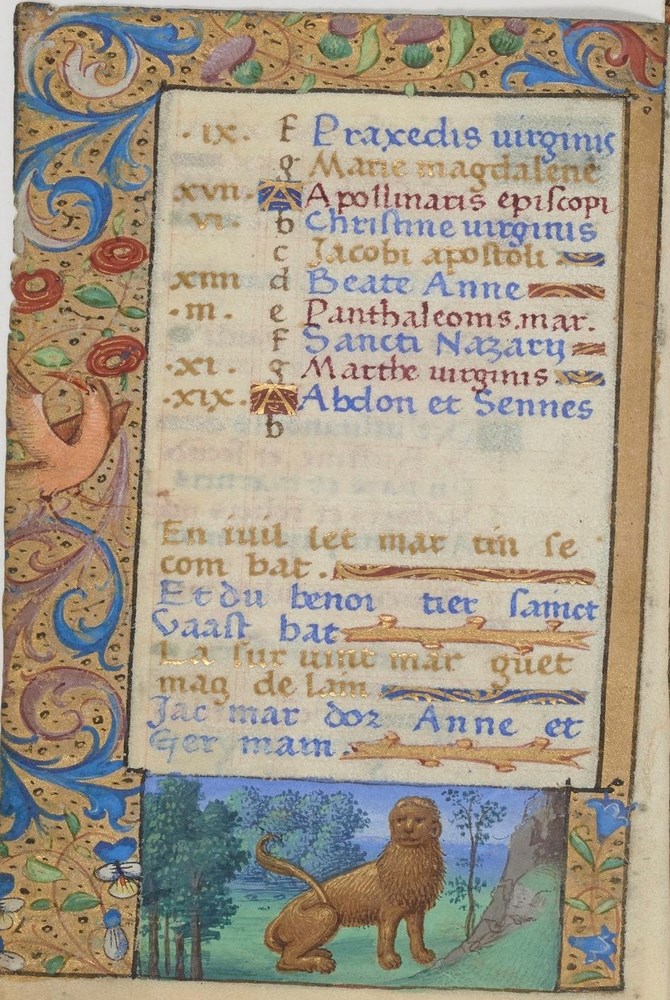 .ix. f Praxedis uirginis
g Marie magdalene
xvii. A Apollinaris episcopi
.vi. b Christine uirginis
c Jacobi apostoli
xiiii d Beate Anne
.iii. e Panthaleonis.mar.
f Sancti Nazarij
.xi. g Marthe uirginis
.xix. A Abdon et Sennes
b
En iuil let mar tin se
com bat.
Et du benoi tier sainct
Vaast bat
La sur uint mar guet
mag de lain
Jac mar dor Anne et
Ger main.